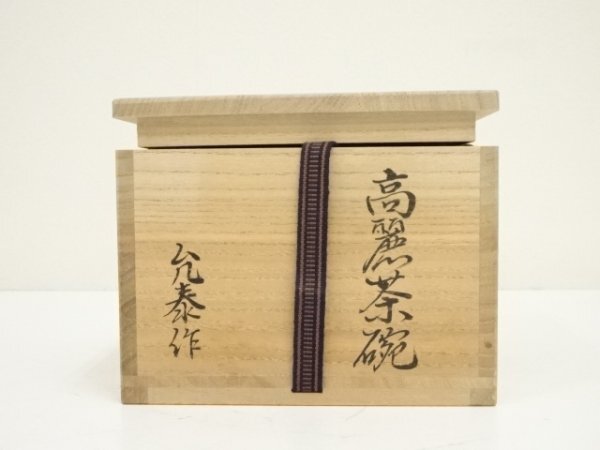 高麗茶碗
允泰作